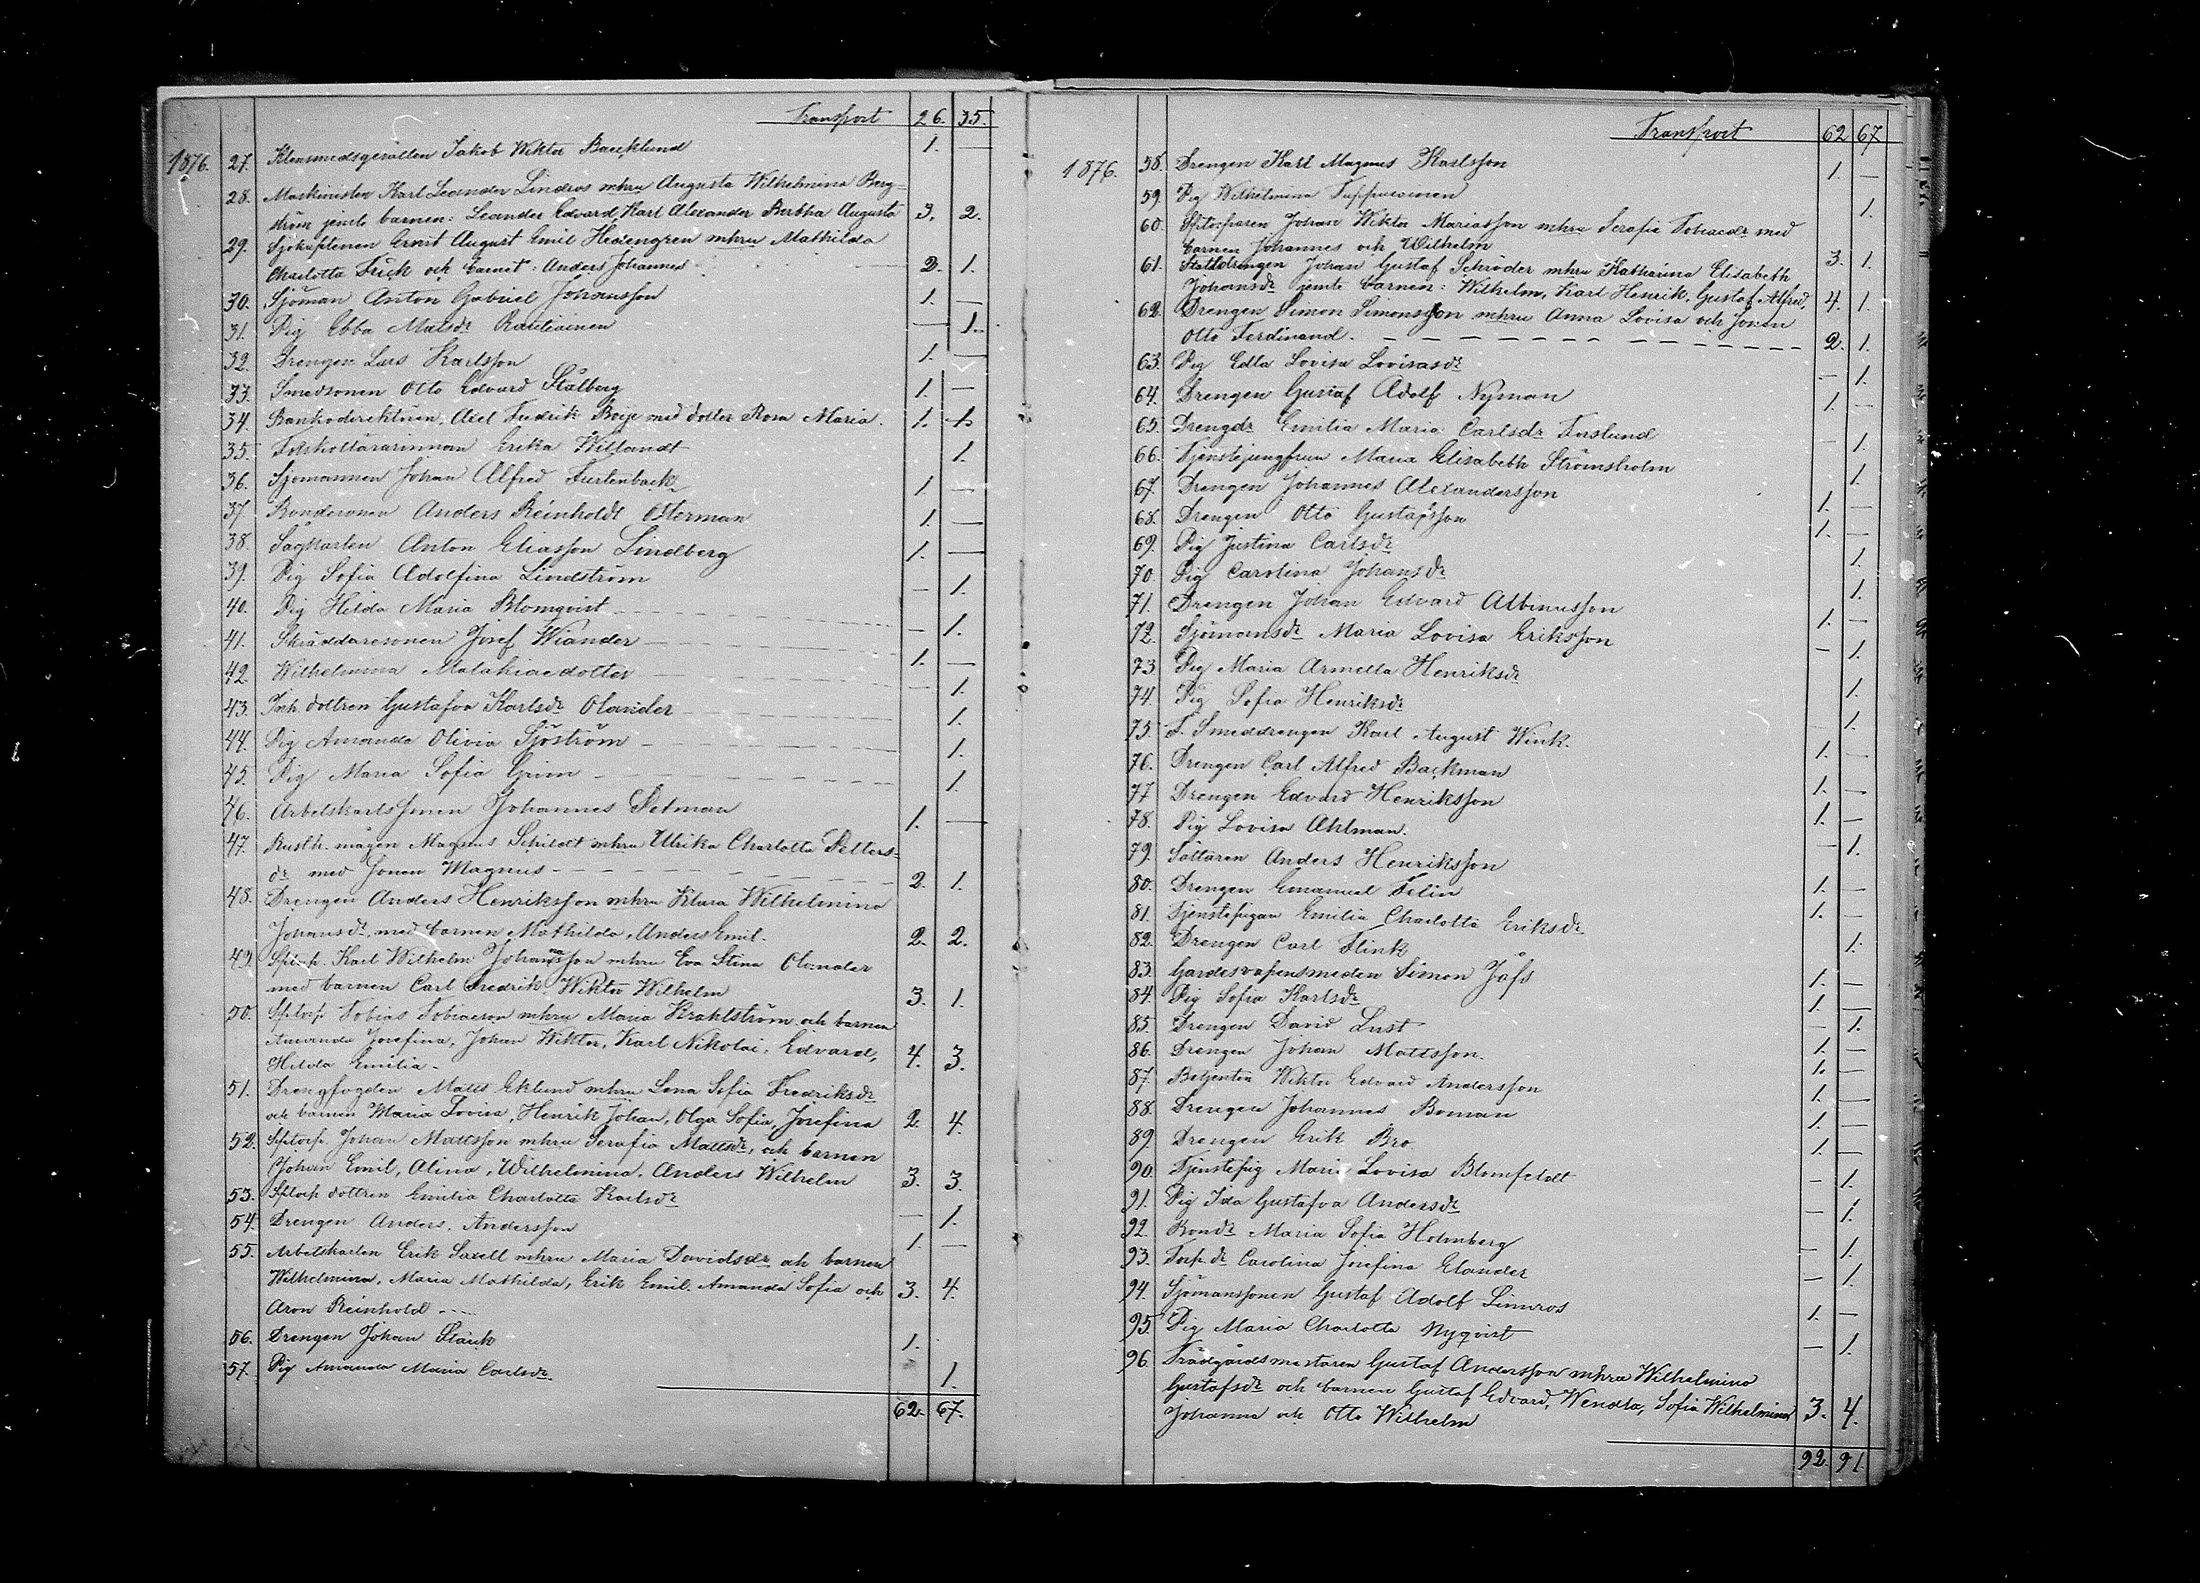 Transport 26. 35.
1876. 27. Klensmedsgesällen Jakob Wiktor Baecklund 1. —
28. Maskinisten Karl Leander Lindros mhru Augusta Wilhelmina Berg-
ström jemte barnen: Leander Edvard, Karl Alexander Bertha Augusta 3. 2.
29. Sjökaptenen Ernst August Emil Hedengren mhru Mathilda
Charlotta Frick och barnet: Anders Johannes 2. 1.
30. Sjöman Anton Gabriel Johansson 1. —
31. Pig Ebba Matsdr Rautiainen — 1.
32. Drengen Lars Karlsson 1. —
33. Smedsonen Otto Edvard Stålberg 1. —
34. Bankodirektören Axel Fredrik Boije med dotter Rosa Maria. 1. 1.
35. Folkskollärarinnan Erika Willandt 1.
36. Sjömannen Johan Alfred Furtenback 1. —
37. Bondesonen Anders Reinholdt Österman 1. —
38. Sågkarlen Anton Eliasson Lindberg 1. —
39. Pig Sofia Adolfina Lindström — 1.
40. Pig Hilda Maria Blomqvist — 1.
41. Skräddaresonen Josef Wiander 1. —
42. Wilhelmina Malakiaedotter — 1.
43. Inh. dottren Gustafva Karlsdr Olander 1.
44. Pig Amanda Olivia Sjöström 1.
45. Pig Maria Sofia Grim 1.
46. Arbetskarlssonen Johannes Detman 1. —
47. Rusth. mågen Magnus Schildt mhru Ulrika Charlotta Petters-
dr med sonen Magnus 2. 1.
48. Drengen Anders Henriksson mhru Klara Wilhelmina
Johansdr, med barnen Mathilda, Anders Emil. 2. 2.
49. Sptorp. Karl Wilhelm Johansson mhru Eva Stina Olander
med barnen Carl Fredrik Wiktor Wilhelm 3. 1.
50. Sptorp Tobias Tobiaeson mhru Maria Krahlström och barnen
Amanda Josefina, Johan Wiktor, Karl Nikolai, Edvard,
Hilda Emilia 4. 3.
51. Drengfogden Matts Eklund mhru Lena Sofia Fredriksdr
och barnen Maria Lovisa, Henrik Johan, Olga Sofia, Josefina 2. 4.
52. Sptorp. Johan Mattsson mhru Serafia Mattsdr, och barnen
Johan Emil, Alina, Wilhelmina, Anders Wilhelm 3. 3.
53. Sptorp dottren Emilia Charlotta Karlsdr — 1.
54. Drengen Anders Andersson 1. —
55. Arbetskarlen Erik Saxell mhru Maria Davidsdr och barnen
Wilhelmina, Maria Mathilda, Erik Emil, Amanda Sofia och 3. 4.
Aron Reinhold
56. Drengen Johan Stark 1.
57. Pig Amanda Maria Carlsdr 1.
62. 67.
Transport 62 67
1876. 58. Drengen Karl Magnus Karlsson 1. —
59. Pig Wilhelmina Tuppurainen 1.
60. Sptorparen Johan Wiktor Mariasson mhru Serafia Tobiaedr med
barnen Johannes och Wilhelm 3. 1.
61. Stalldrengen Johan Gustaf Schröder mhru Katharina Elisabeth
Johansdr jemte barnen: Wilhelm, Karl Henrik, Gustaf Alfred, 4. 1.
62. Drengen Simon Simonsson mhru Anna Lovisa och sonen
Otto Ferdinand. 2. 1.
63. Pig Edla Lovisa Lovisasdr — 1.
64. Drengen Gustaf Adolf Nyman 1. —
65. Drengdr Emilia Maria Carlsdr Forslund — 1.
66. Tjenstejungfrun Maria Elisabeth Strömsholm 1.
67. Drengen Johannes Alexandersson 1. —
68. Drengen Otto Gustafsson 1. —
69. Pig Justina Carlsdr 1.
70. Pig Carolina Johansdr 1.
71. Drengen Johan Edvard Albinusson 1. —
72. Sjömansdr Maria Lovisa Eriksson — 1.
73 Pig Maria Armella Henriksdr 1.
74. Pig Sofia Henriksdr 1.
75. F. Smeddrengen Karl August Wink. 1. —
76. Drengen Carl Alfred Backman 1. —
77 Drengen Edvard Henriksson 1. —
78. Pig Lovisa Ahlman. — 1.
79. Anders Henriksson 1. —
80. Drengen Emanuel Felin 1. —
81. Tjenstepigan Emilia Charlotta Eriksdr 1.
82. Drengen Carl Flink 1. —
83. Gardesvapensmeden Simon Jåfs 1. —
84. Pig Sofia Karlsdr — 1.
85. Drengen David Lust 1. —
86. Drengen Johan Mattsson. 1. —
87. Betjenten Wiktor Edvard Andersson 1. —
88. Drengen Johannes Boman 1. —
89. Drengen Erik Bro 1. —
90. Tjenstepig Maria Lovisa Blomfeldt — 1.
91. Pig Ida Gustafva Andersdr — 1.
92. Bondr Maria Sofia Holmberg — 1.
93. Torp. dr Carolina Josefina Elander — 1.
94. Sjömanssonen Gustaf Adolf Limros 1. —
95. Pig Maria Charlotta Nyqvist — 1.
96. Trädgårdsmästaren Gustaf Andersson mhru Wilhelmina
Gustafsdr och barnen Gustaf Edvard, Wendla, Sofia Wilhelmina
Johanna och Otto Wilhelm 3. 4.
92. 91.